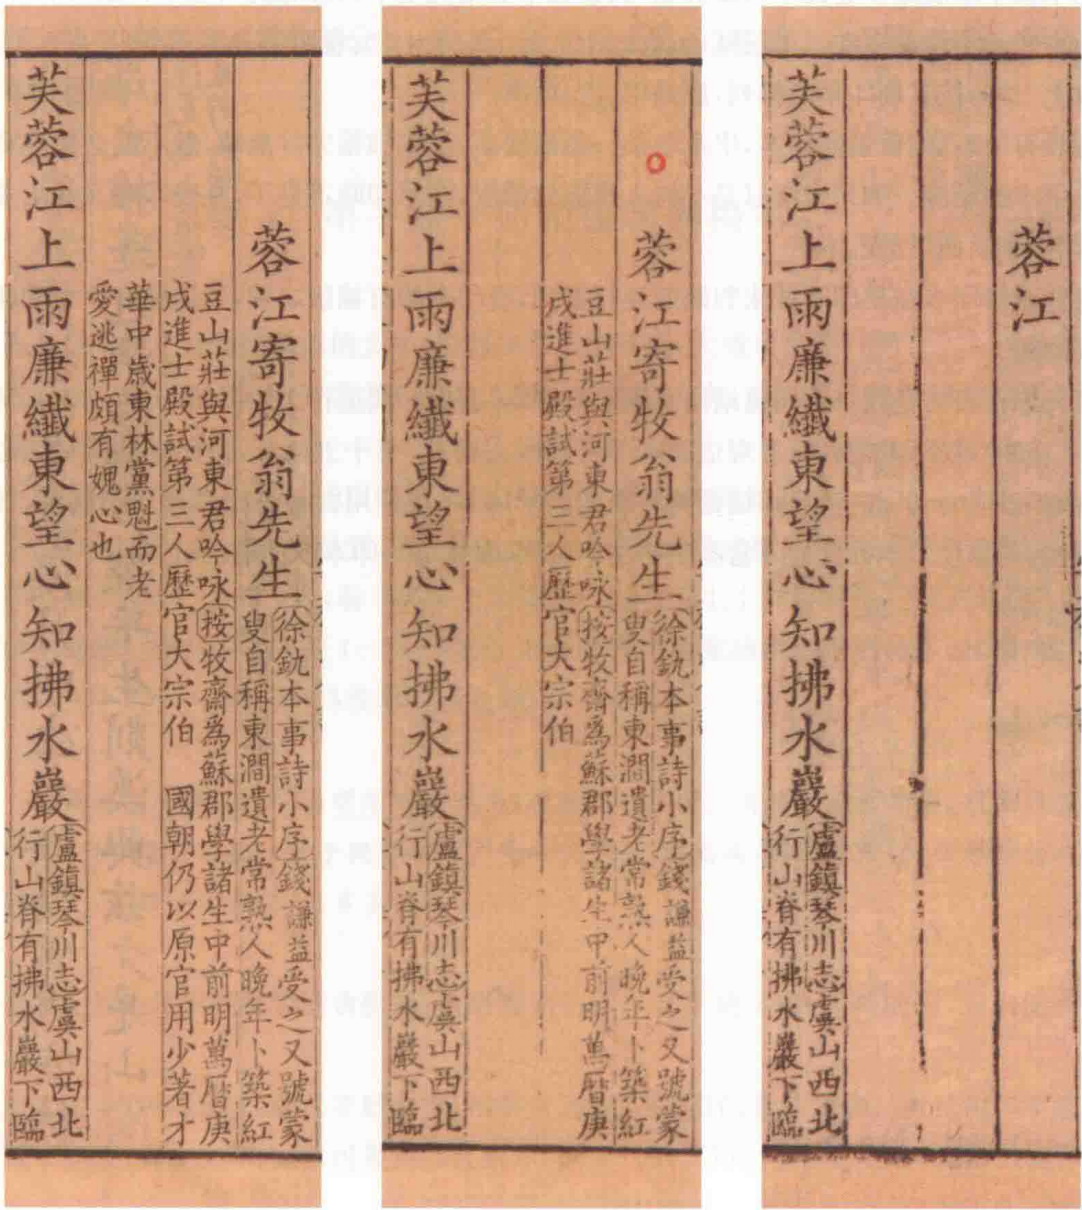 蓉江寄牧翁先生
徐釚本事詩小序錢謙益受之又號蒙
叟自稱東澗遺老常熟人晚年卜築紅
豆山莊與河東君吟咏按牧齋爲蘇郡學諸生中前明萬曆庚
戌進士殿試第三人歷官大宗伯　國朝仍以原官用少著才
華中歲東林黨魁而老
愛逃禪頗有媿心也
芙蓉江上雨廉纖東望心知拂水巖
盧鎮琴川志虞山西北
行山脊有拂水巖下臨
蓉江寄牧翁先生
徐釚本事詩小序錢謙益受之又號蒙
叟自稱東澗遺老常熟人晚年卜築紅
豆山莊與河東君吟咏按牧齋爲蘇郡學諸生中前明萬曆庚
戌進士殿試第三人歷官大宗伯
芙蓉江上雨廉纖東望心知拂水巖
盧鎮琴川志虞山西北
行山脊有拂水巖下臨
蓉江
芙蓉江上雨廉纖東望心知拂水巖
盧鎮琴川志虞山西北
行山脊有拂水巖下臨